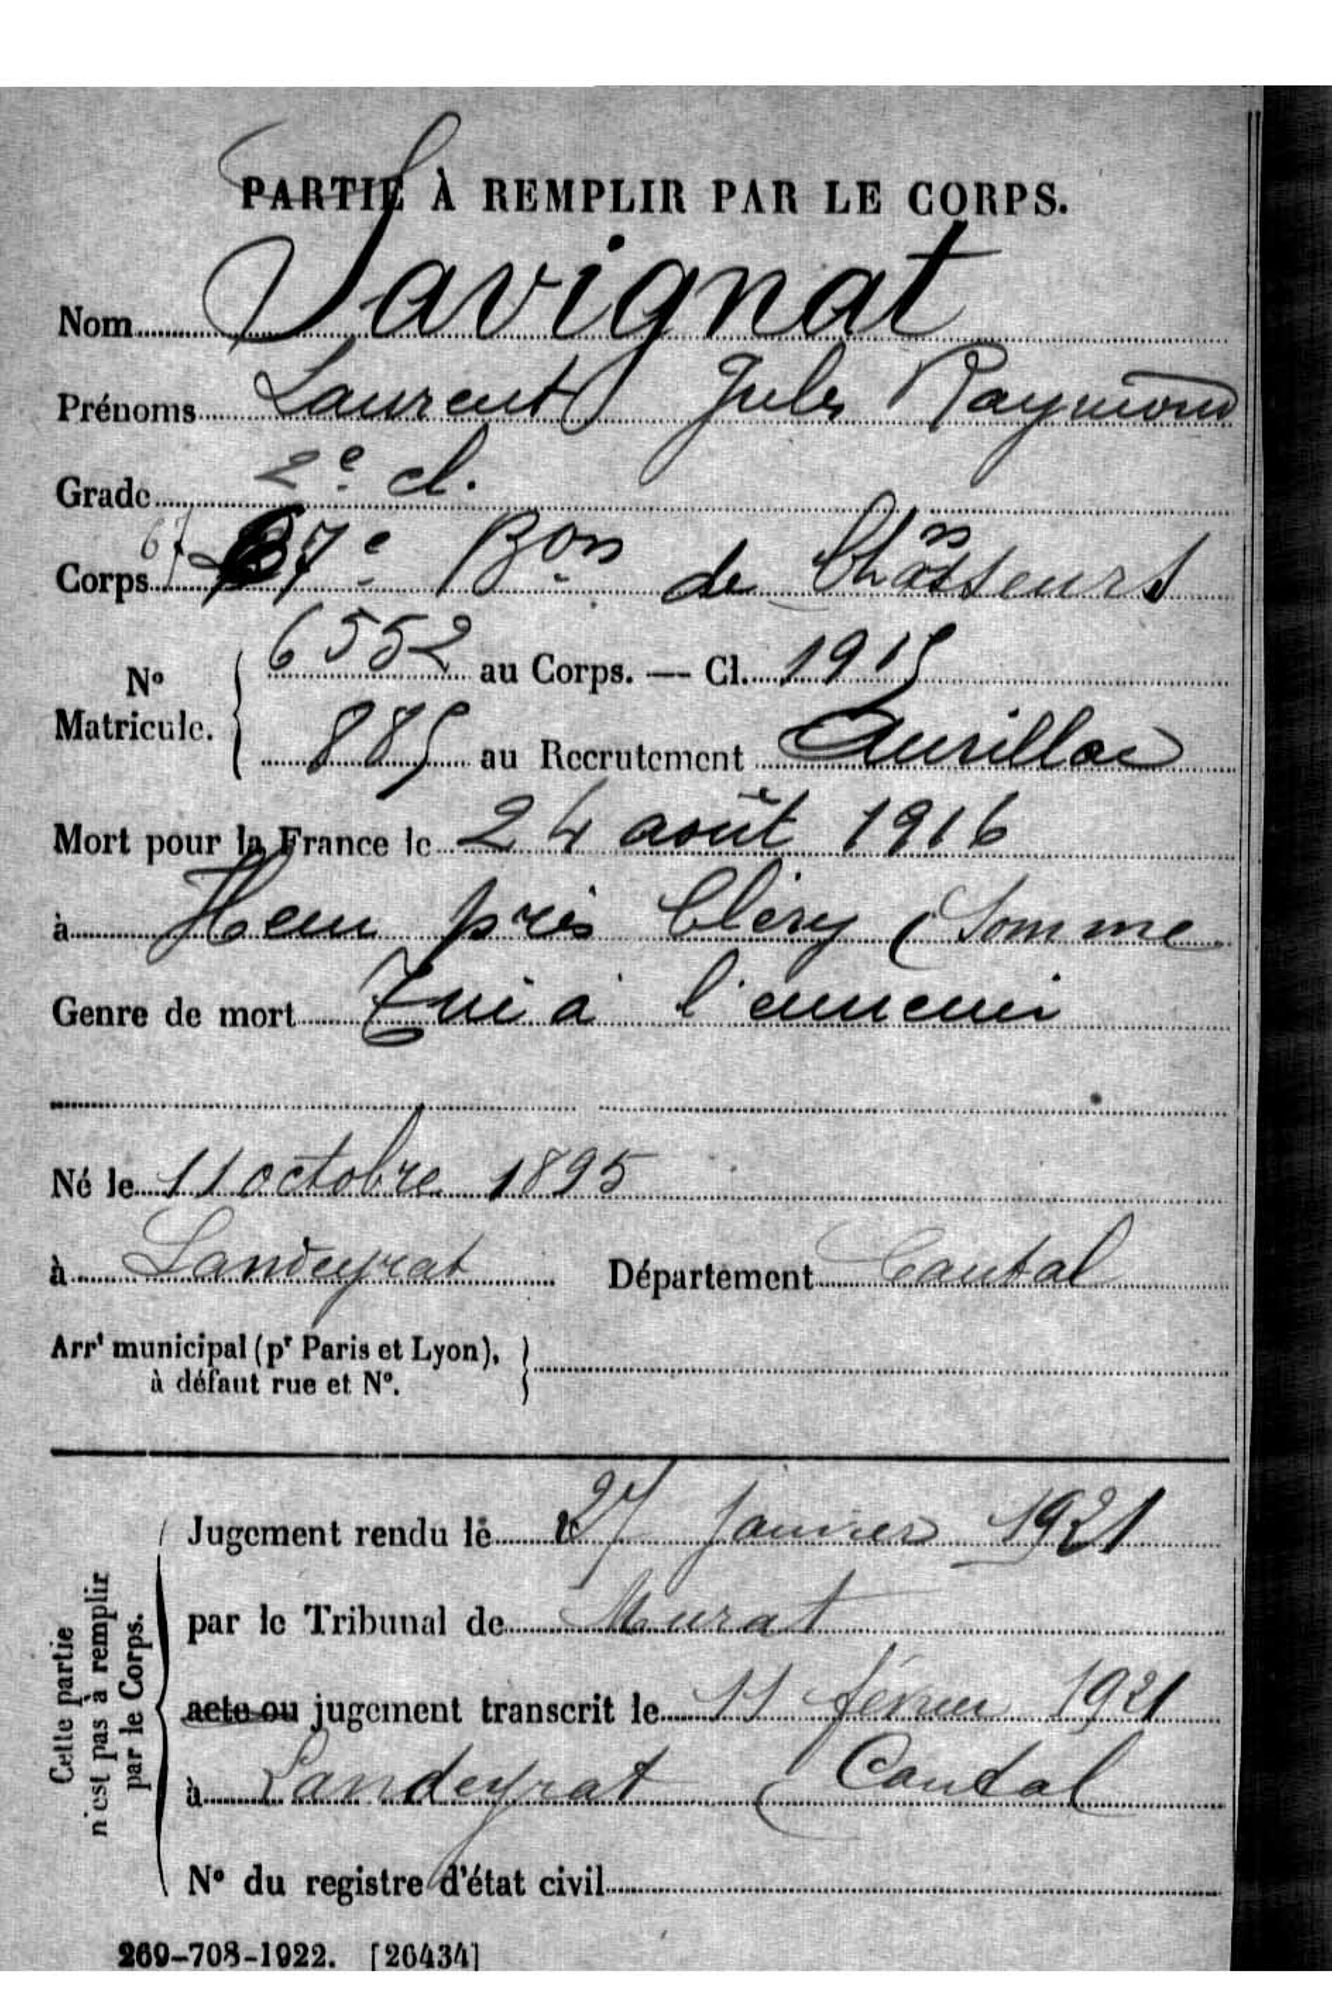 PARTIE À REMPLIR PAR LE CORPS.
Nom Savignat
Prénoms Laurent Jules Raymond
Grade 2e cl.
67
Corps 67e Bon de Chasseurs
No Matricule. 6552 au Corps. — Cl. 1915
885 au Recrutement Aurillac
Mort pour la France le 24 août 1916
à Hem près Cléry (Somme
Genre de mort Tué à l'ennemi
Né le 11 octobre 1895
à Landeyrat Département Cantal
Arrt municipal (pr Paris et Lyon),
à défaut rue et No.
Cette partie
n'est pas à remplir
par le Corps.
Jugement rendu le 27 janvier 1921
par le Tribunal de Murat
acte ou jugement transcrit le 11 février 1921
à Landeyrat (Cantal
No du registre d'état civil
269-708-1922. [26434]